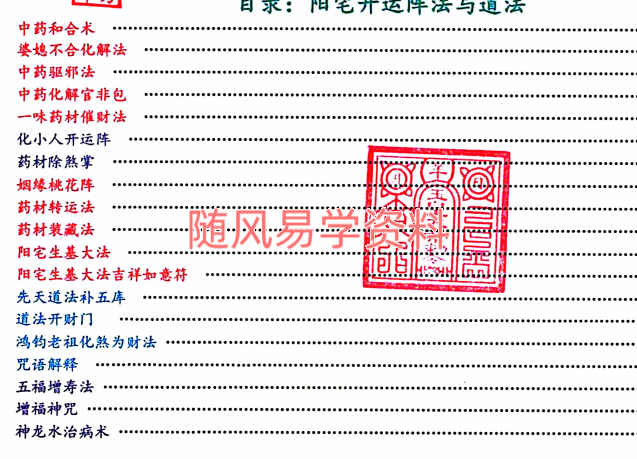 目录：阳宅开运阵法与道法
中药和合术
婆媳不合化解法
中药驱邪法
中药化解官非包
一味药材催财法
化小人开运阵
药材除煞掌
姻缘桃花阵
药材转运法
药材装藏法
随风易学资料
阳宅生基大法
阳宅生基大法吉祥如意符
先天道法补五库
道法开财门
鸿钧老祖化煞为财法
咒语解释
五福增寿法
增福神咒
神龙水治病术